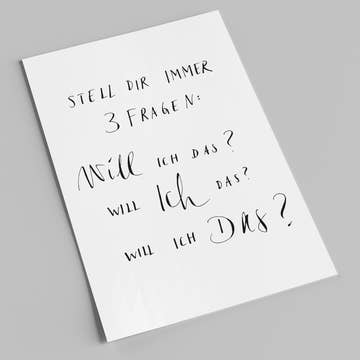 STELL DIR IMMER
3 FRAGEN:
Will ICH DAS?
WILL Ich DAS?
WILL ICH DAS?